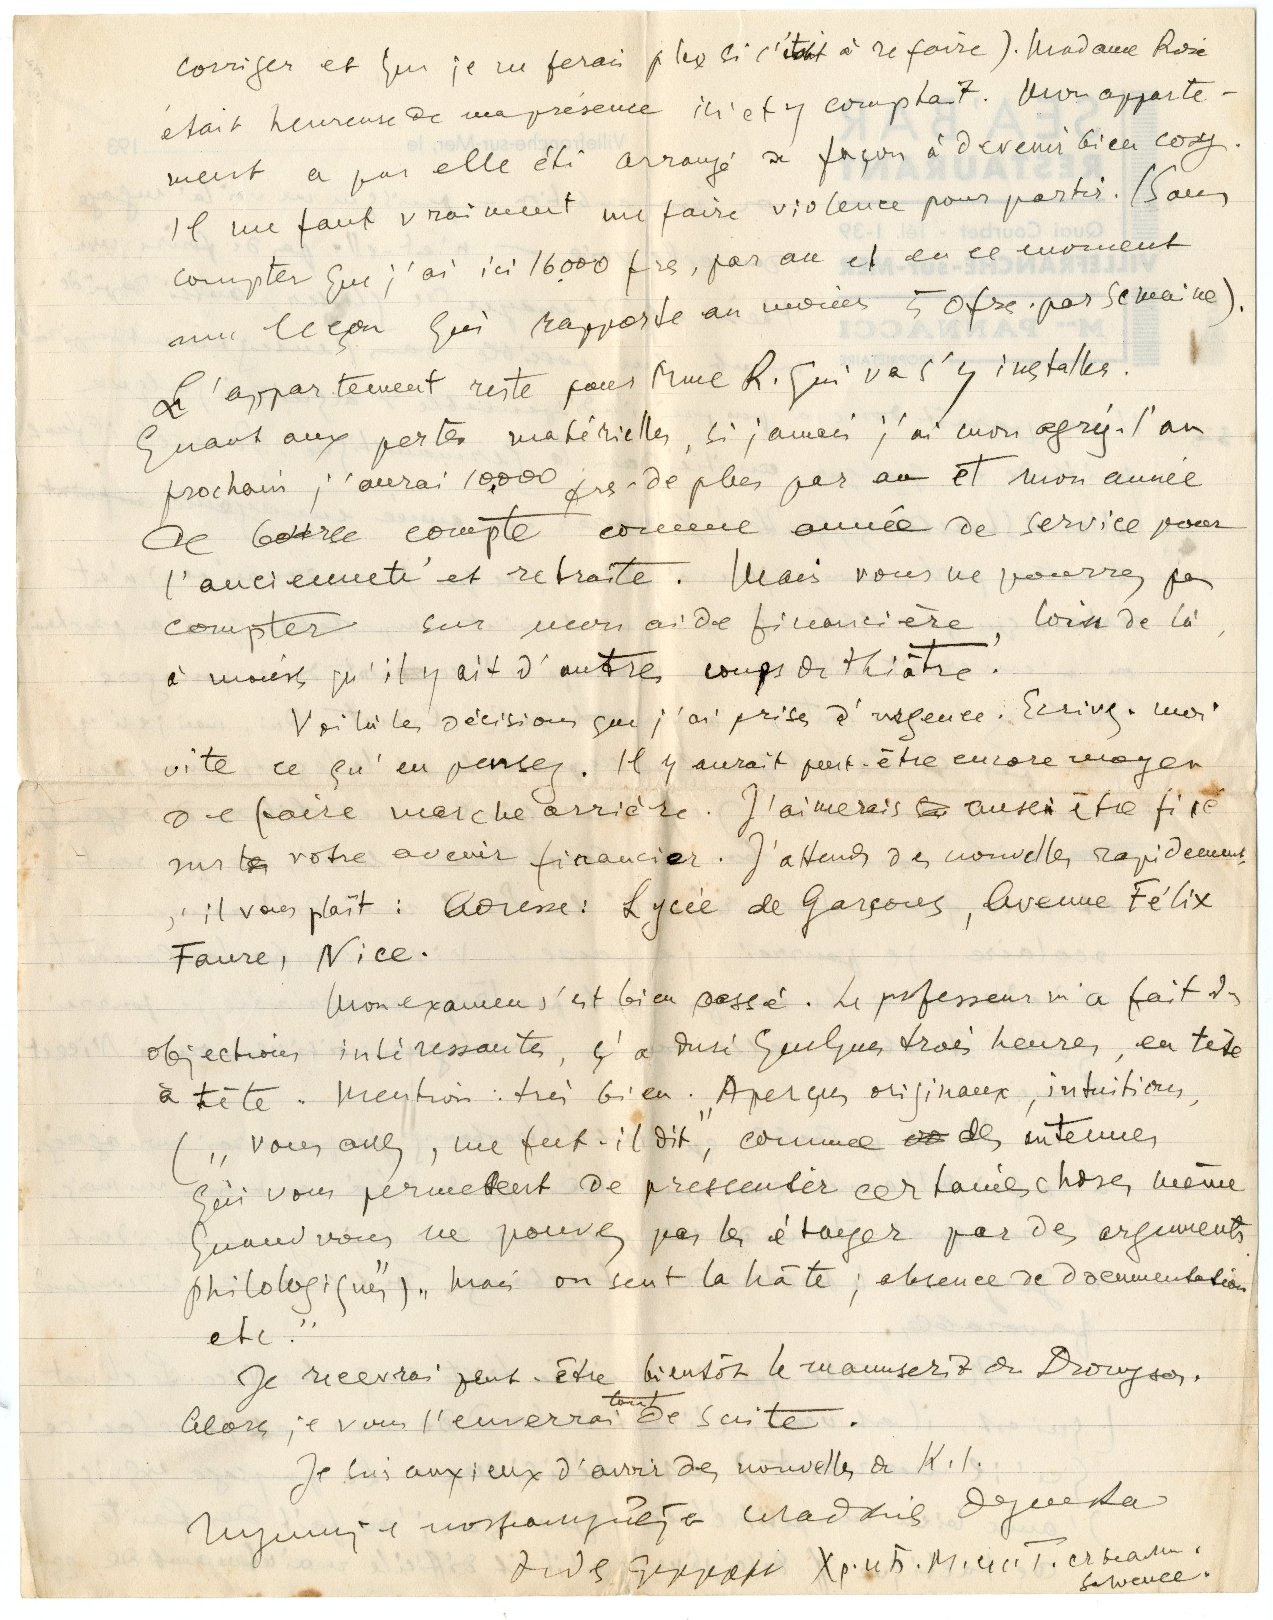 corriger et que je ne ferai plus si c'était à refaire). Madame Rose
était heureuse de ma présence ici et y comptait. Mon apparte-
ment a par elle été arrangé de façon à devenir bien cosy.
Il me faut vraiment me faire violence pour partir. (Sans
compter que j'ai ici 16000 frs, par an et en ce moment
une leçon qui rapporte au moins 50 frs. par semaine).
L'appartement reste pour Mme R. qui va s'y installer.
Quant aux pertes matérielles, si jamais j'ai mon agrég. l'an
prochain j'aurai 10,000 frs. de plus par an et mon année
de bourse compte comme année de service pour
l'ancienneté et retraite. Mais vous ne pourrez pas
compter sur mon aide financière, loin de là,
à moins qu'il y ait d'autres coups de théâtre.
Voilà les décisions que j'ai prises d'urgence. Ecrivez-moi
vite ce qu'en pensez. Il y aurait peut-être encore moyen
de faire marche arrière. J'aimerais aussi être fixé
sur votre avenir financier. J'attends des nouvelles rapidement,
s'il vous plaît : Adresse : Lycée de Garçons, Avenue Félix
Faure, Nice.
Mon examen s'est bien passé. Le professeur m'a fait des
objections intéressantes, ç'a duré quelques trois heures, en tête
à tête. Mention : très bien. „Aperçus originaux, intuitions,
(„vous avez, me fut-il dit", comme des antennes
qui vous permettent de pressentir certaines choses même
quand vous ne pouvez pas les étayer par des arguments
philologiques") „mais on sent la hâte ; absence de documentation
etc."
Je recevrai peut-être bientôt le manuscrit du Droysen.
Alors je vous l'enverrai tout de suite.
Je suis anxieux d'avoir des nouvelles de K.I.